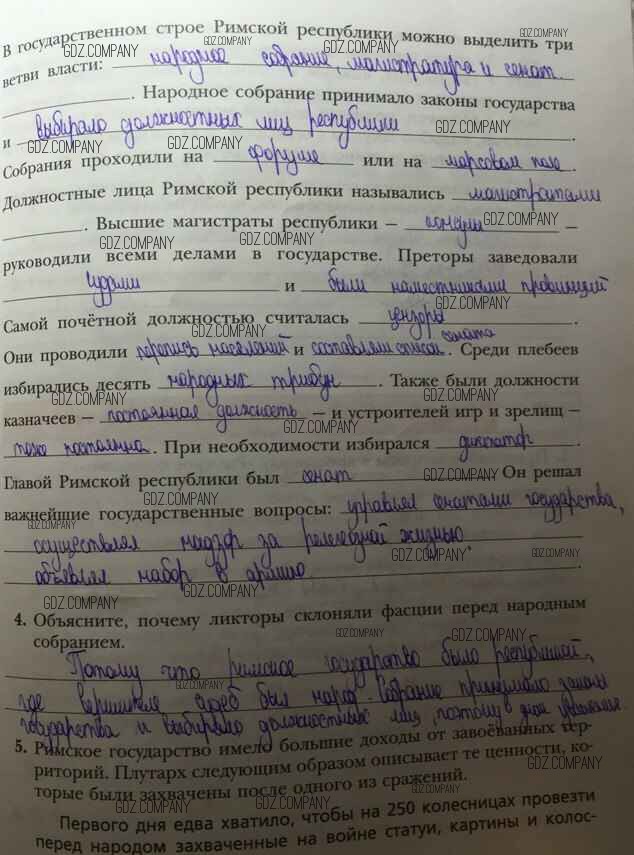 В государственном строе Римской республики можно выделить три
ветви власти: народное собрание, магистратура и сенат
. Народное собрание принимало законы государства
и выбирало должностных лиц республики .
Собрания проходили на форуме или на марсовом поле.
Должностные лица Римской республики назывались магистратами
. Высшие магистраты республики – консулы –
руководили всеми делами в государстве. Преторы заведовали
судами и были наместниками провинций
Самой почётной должностью считалась цензоры .
Они проводили перепись населений и составляли список сената. Среди плебеев
избирались десять народных трибун . Также были должности
казначеев – постоянная должность – и устроителей игр и зрелищ –
тоже постоянна. При необходимости избирался диктатор .
Главой Римской республики был сенат Он решал
важнейшие государственные вопросы: управлял сенатами государства,
осуществлял надзор за религиозной жизнью
объявлял набор в армию.
4. Объясните, почему ликторы склоняли фасции перед народным
собранием.
Потому что римское государство было республикой,
где вершителем судеб был народ. Собрание принимало законы
государства и выбирало должностных лиц, поэтому уважение.
5. Римское государство имело большие доходы от завоёванных тер-
риторий. Плутарх следующим образом описывает те ценности, ко-
торые были захвачены после одного из сражений.
Первого дня едва хватило, чтобы на 250 колесницах провезти
перед народом захваченные на войне статуи, картины и колос-
GDZ.COMPANY